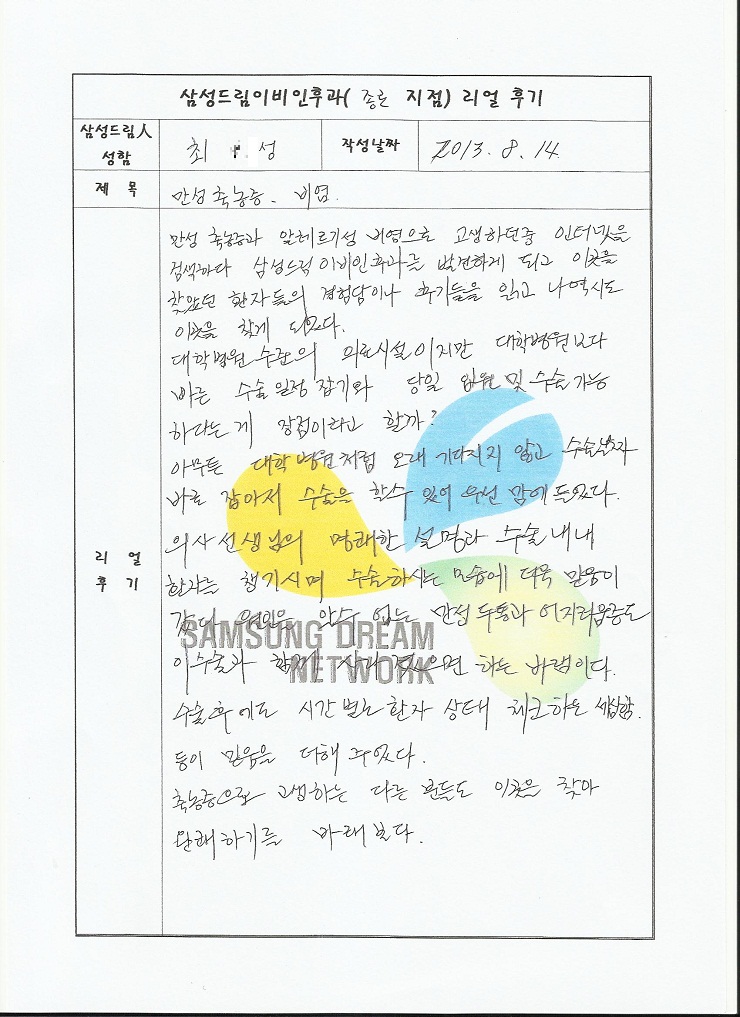 삼성드림이비인후과( 종로 지점) 리얼 후기
삼성드림人 성함
최 성
작성날짜
2013. 8. 14
제 목
만성 축농증. 비염.
리 얼 후 기
만성 축농증과 알레르기성 비염으로 고생하던중 인터넷을
검색하다 삼성드림이비인후과를 발견하게 되고 이곳을
찾았던 환자들의 경험담이나 후기들을 읽고 나역시도
이곳을 찾게 되었다.
대학병원 수준의 의료시설이지만 대학병원보다
빠른 수술일정 잡기와 당일 입원 및 수술가능
하다는게 장점이라고 할까?
아무튼 대학병원처럼 오래 기다리지 않고 수술날짜
바로 잡아서 수술을 할수 있어 우선 맘에 들었다.
의사선생님의 명쾌한 설명과 수술내내
환자를 챙기시며 수술하시는 모습에 더욱 믿음이
갔다 원인을 알수 없는 만성 두통과 어지러움증도
이수술과 함께 사라졌으면 하는 바램이다.
수술후에도 시간별로 환자 상태 체크하는 세심함.
등이 믿음을 더해 주었다.
축농증으로 고생하는 다른 분들도 이곳을 찾아
완쾌하기를 바래본다.
SAMSUNG DREAM
NETWORK